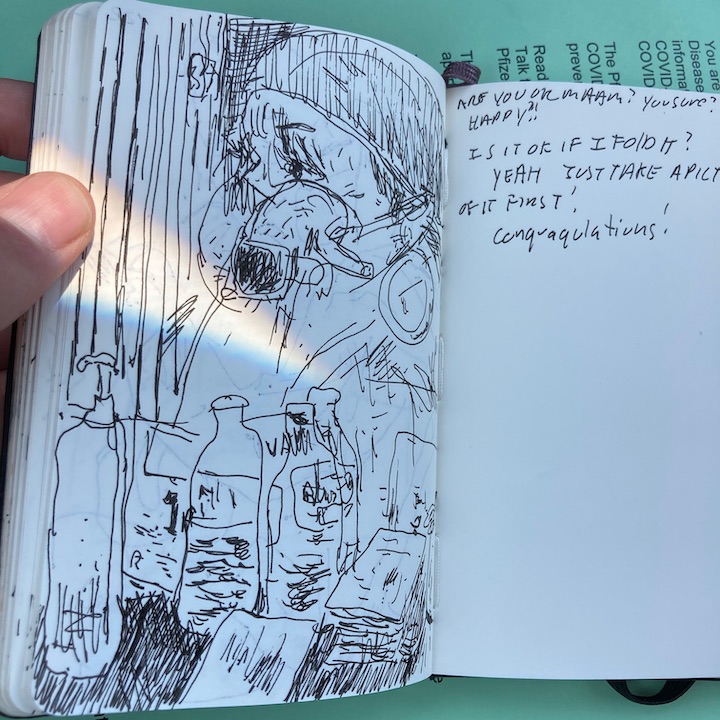 ARE YOU OK MAAM? YOU SURE?
HAPPY?!
IS IT OK IF I FOLD IT?
YEAH JUST TAKE A PIC
OF IT FIRST!
congragulations!
VANI
You are
Disease
informa
COVID
COVID
The P
COVI
preve
Read
Talk
Pfize
T
a